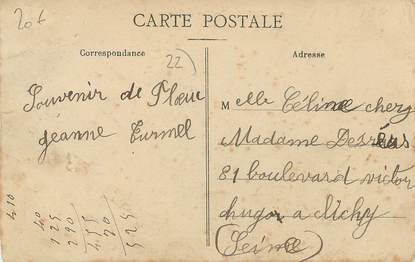 20 €
CARTE POSTALE
Correspondance
22
Adresse
Souvenir de Plœuc
Jeanne Turmel
Melle Céline chez
Madame Des
81 boulevard victor
hugo a Clichy
(Seine)
4,10
40
125
290
455
70
525